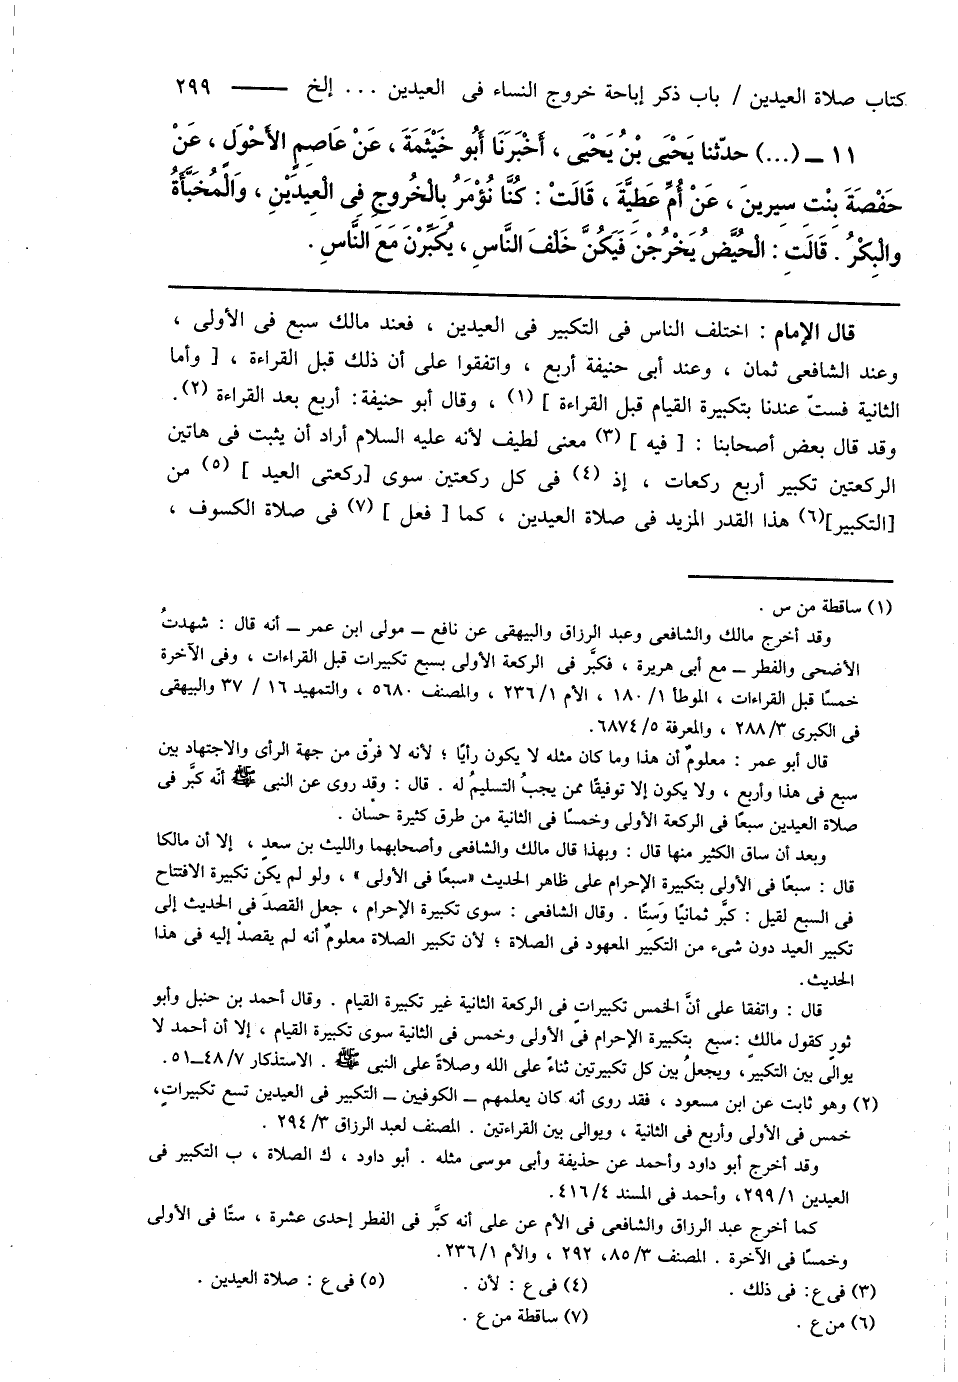 كتاب صلاة العيدين / باب ذكر إباحة خروج النساء فى العيدين ... إلخ ــــــ ٢٩٩
١١ ــ (...) حدّثنا يَحْيَى بْنُ يَحْيَى ، أَخْبَرَنَا أَبُو خَيْثَمَةَ ، عَنْ عَاصِمٍ الأَحْوَلِ ، عَنْ
حَفْصَةَ بِنْتِ سِيرِينَ ، عَنْ أُمِّ عَطِيَّةَ ، قَالَتْ : كُنَّا نُؤْمَرُ بِالْخُرُوجِ فِى الْعِيدَيْنِ ، وَالْمُخَبَّأَةُ
وَالْبِكْرُ . قَالَتِ : الْحُيَّضُ يَخْرُجْنَ فَيَكُنَّ خَلْفَ النَّاسِ ، يُكَبِّرْنَ مَعَ النَّاسِ .
قال الإمام : اختلف الناس فى التكبير فى العيدين ، فعند مالك سبع فى الأولى ،
وعند الشافعى ثمان ، وعند أبى حنيفة أربع ، واتفقوا على أن ذلك قبل القراءة ، [ وأما
الثانية فستّ عندنا بتكبيرة القيام قبل القراءة ] (١) ، وقال أبو حنيفة: أربع بعد القراءة (٢).
وقد قال بعض أصحابنا : [ فيه ] (٣) معنى لطيف لأنه عليه السلام أراد أن يثبت فى هاتين
الركعتين تكبير أربع ركعات ، إذ (٤) فى كل ركعتين سوى [ركعتى العيد ] (٥) من
[التكبير](٦) هذا القدر المزيد فى صلاة العيدين ، كما [ فعل ] (٧) فى صلاة الكسوف ،
(١) ساقطة من س .
وقد أخرج مالك والشافعى وعبد الرزاق والبيهقى عن نافع ــ مولى ابن عمر ــ أنه قال : شهدتُ
الأضحى والفطر ــ مع أبى هريرة ، فكبَّر فى الركعة الأولى بسبع تكبيرات قبل القراءات ، وفى الآخرة
خمسًا قبل القراءات ، الموطأ ١/ ١٨٠ ، الأم ١/ ٢٣٦ ، والمصنف ٥٦٨٠ ، والتمهيد ١٦ / ٣٧ والبيهقى
فى الكبرى ٣/ ٢٨٨ ، والمعرفة ٥/ ٦٨٧٤.
قال أبو عمر : معلومٌ أن هذا وما كان مثله لا يكون رأيًا ؛ لأنه لا فرْق من جهة الرأى والاجتهاد بين
سبع فى هذا وأربع ، ولا يكون إلا توقيفًا ممن يجبُ التسليمُ له . قال : وقد روى عن النبى ﷺ أنّه كبَّر فى
صلاة العيدين سبعًا فى الركعة الأولى وخمسًا فى الثانية من طرق كثيرة حسْان .
وبعد أن ساق الكثير منها قال : وبهذا قال مالك والشافعى وأصحابهما والليث بن سعدٍ ، إلا أن مالكا
قال : سبعًا فى الأولى بتكبيرة الإحرام على ظاهر الحديث «سبعًا فى الأولى» ، ولو لم يكن تكبيرة الافتتاح
فى السبع لقيل : كبَّر ثمانيًا وَستًا . وقال الشافعى : سوى تكبيرة الإحرام ، جعل القصدَ فى الحديث إلى
تكبير العيد دون شىء من التكبير المعهود فى الصلاة ؛ لأن تكبير الصلاة معلومٌ أنه لم يقصدْ إليه فى هذا
الحديث.
قال : واتفقا على أنَّ الخمس تكبيراتٍ فى الركعة الثانية غير تكبيرة القيام . وقال أحمد بن حنبل وأبو
ثورٍ كقول مالكٍ :سبع بتكبيرة الإحرام فى الأولى وخمس فى الثانية سوى تكبيرة القيام ، إلا أن أحمد لا
يوالى بين التكبير، ويجعلُ بين كل تكبيرتين ثناءً على الله وصلاةً على النبى ﷺ . الاستذكار ٧/ ٤٨ــ٥١.
(٢) وهو ثابت عن ابن مسعود ، فقد روى أنه كان يعلمهم ــ الكوفيين ــ التكبير فى العيدين تسع تكبيراتٍ،
خمس فى الأولى وأربع فى الثانية ، ويوالى بين القراءتين . المصنف لعبد الرزاق ٣/ ٢٩٤ .
وقد أخرج أبو داود وأحمد عن حذيفة وأبى موسى مثله . أبو داود ، ك الصلاة ، ب التكبير فى
العيدين ١/ ٢٩٩، وأحمد فى المسند ٤/ ٤١٦.
كما أخرج عبد الرزاق والشافعى فى الأم عن على أنه كبَّر فى الفطر إحدى عشرة ، ستًا فى الأولى
وخمسًا فى الآخرة . المصنف ٣/ ٨٥، ٢٩٢ ، والأم ١/ ٢٣٦.
(٣) فى ع: فى ذلك . (٤) فى ع : لأن . (٥) فى ع : صلاة العيدين .
(٦) من ع . (٧) ساقطة من ع .